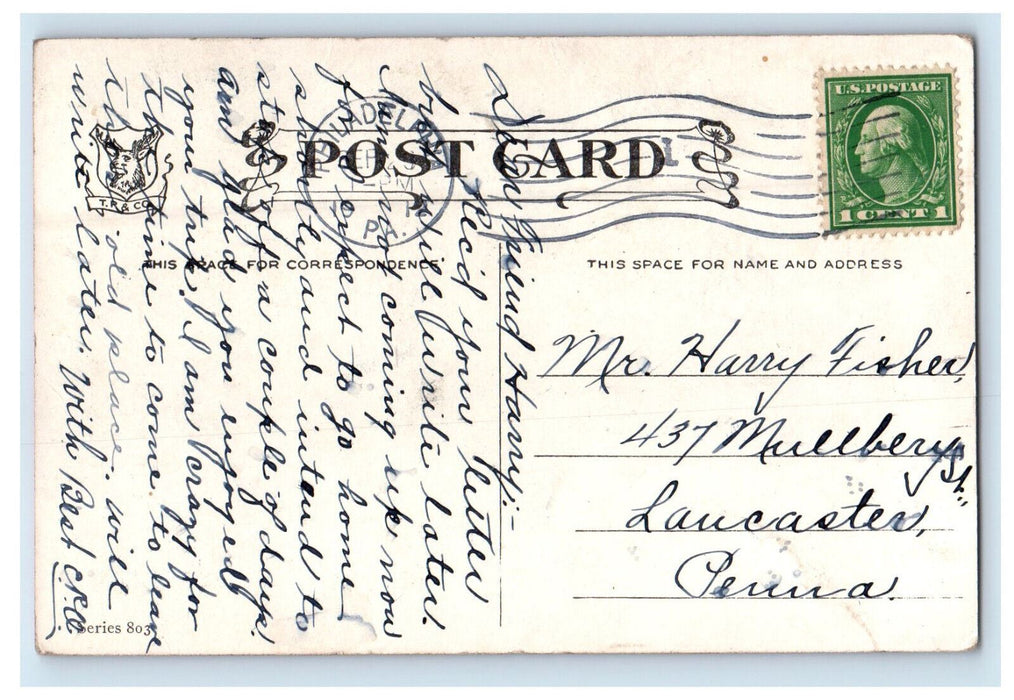 POST CARD
T.P. & CO.
U.S. POSTAGE
1 CENT 1
PHILADELPHIA
SEP
PM
PA.
1
THIS SPACE FOR CORRESPONDENCE
THIS SPACE FOR NAME AND ADDRESS
Dear Friend Harry:-
Rec'd your letter
but will write later.
Am now coming up now
for I expect to go home
shortly and intend to
stop off a couple of days.
am glad you enjoyed
your trip. I am crazy for
the time to come to leave
this old place. will
write later. With Best
Mr. Harry Fisher,
437 Mullbery St.,
Lancaster,
Penna.
Series 803